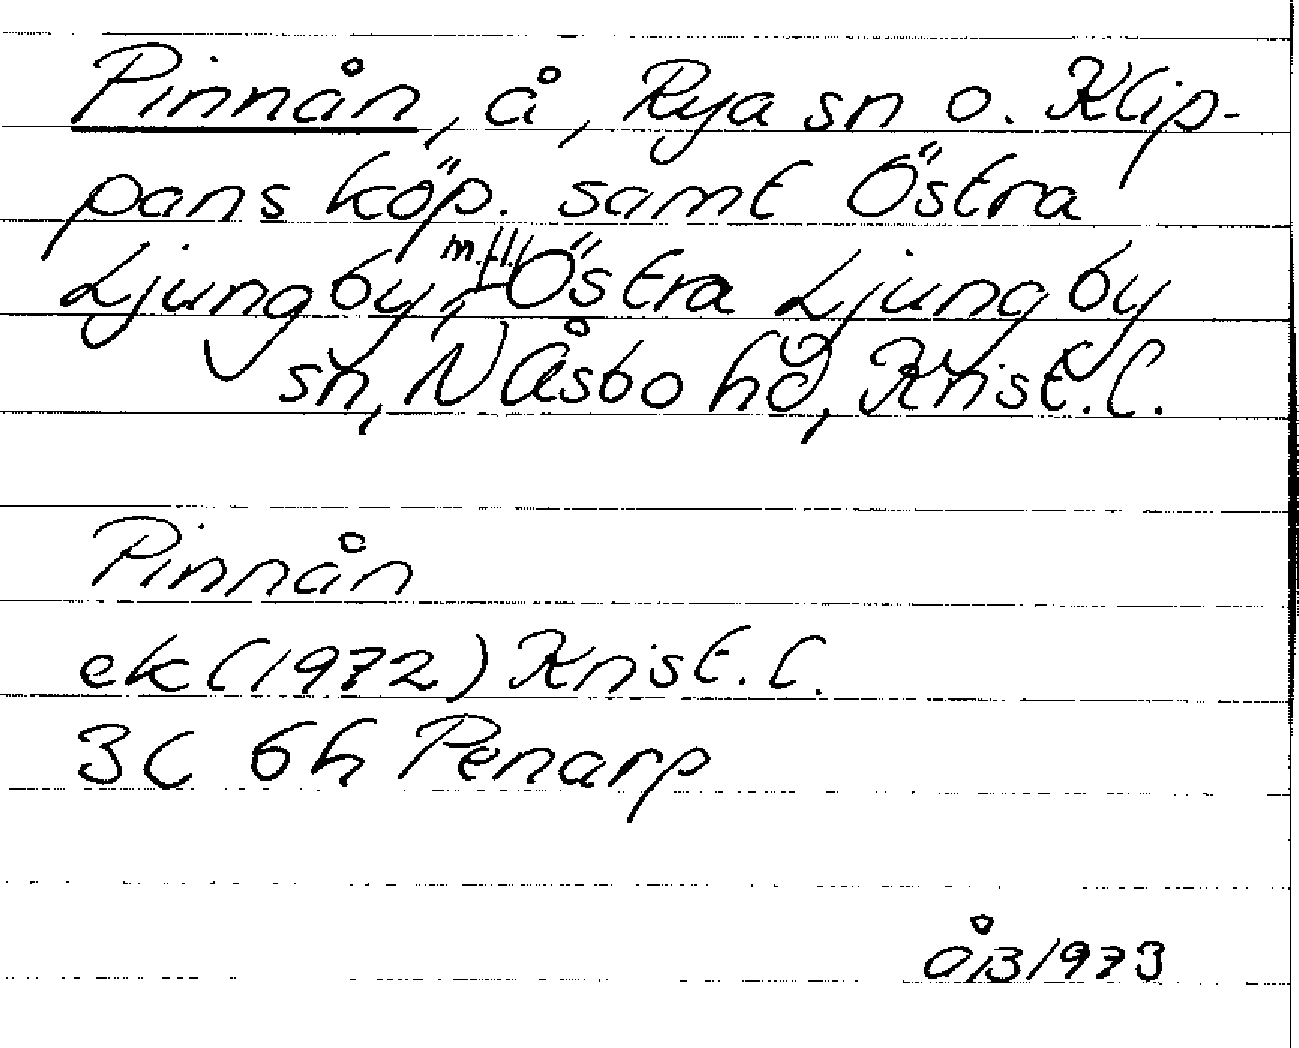 Pinnån, å, Rya sn o. Klip-
pans köp. samt Östra
Ljungby, m. fl. Östra Ljungby
sn, N Åsbo hd, Krist. l.
Pinnån
ek (1972) Krist. l.
3C 6h Penarp
ÅB 1973